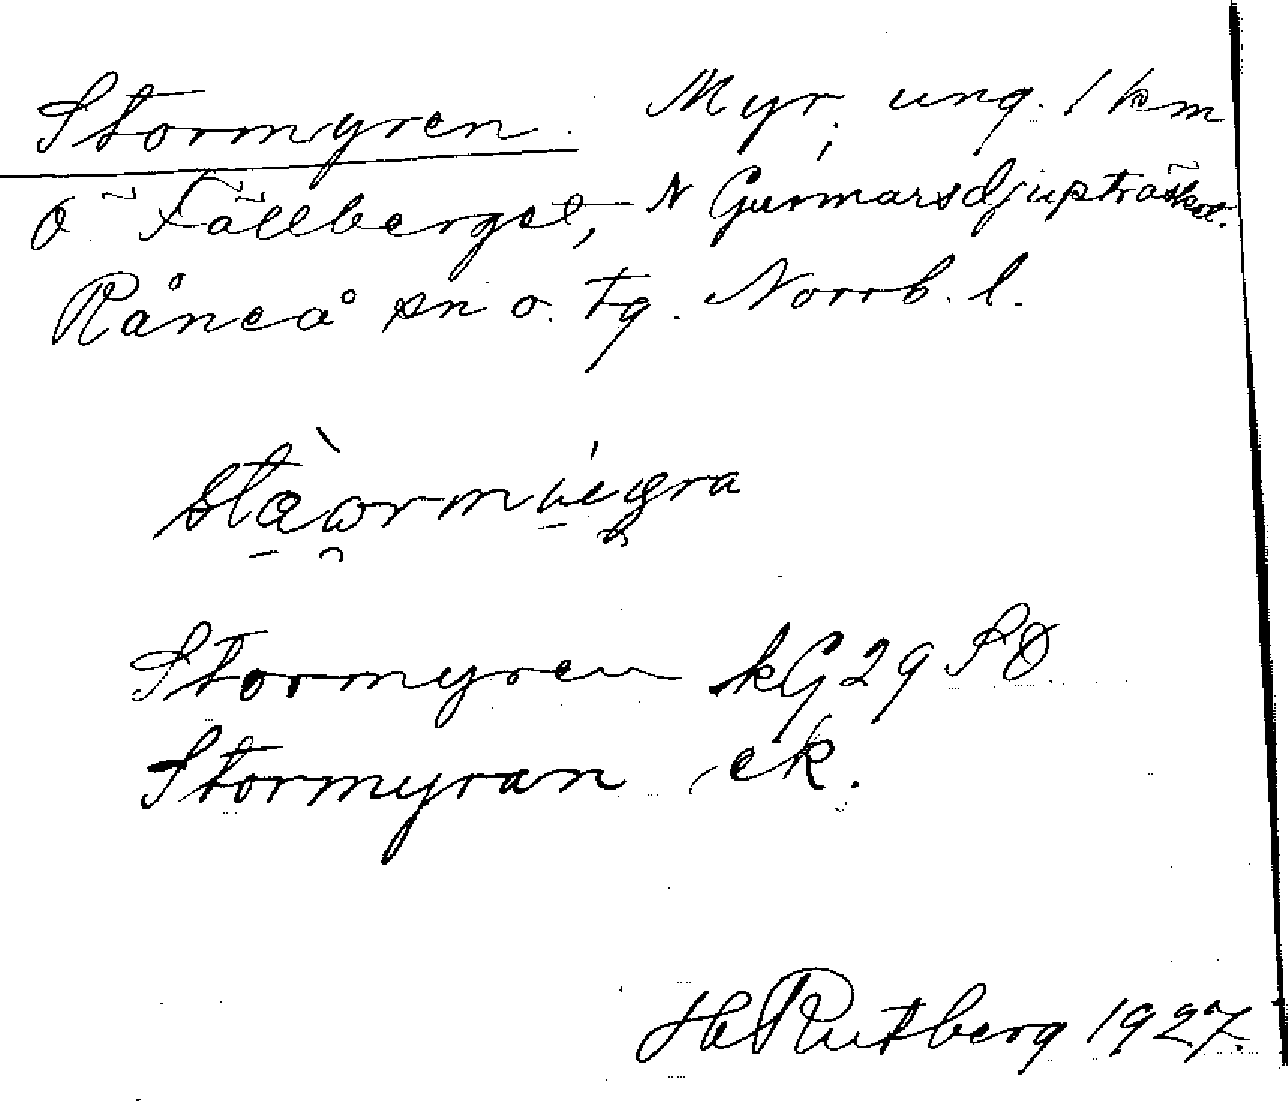 Stormyren. Myr, ung. 1 km
ö Fällberget, N Gunnarsdjupträsket.
Råneå sn o. tg. Norrb. l.
Stormyren kG29 SO
Stormyran ek.
H Rutberg 1927.